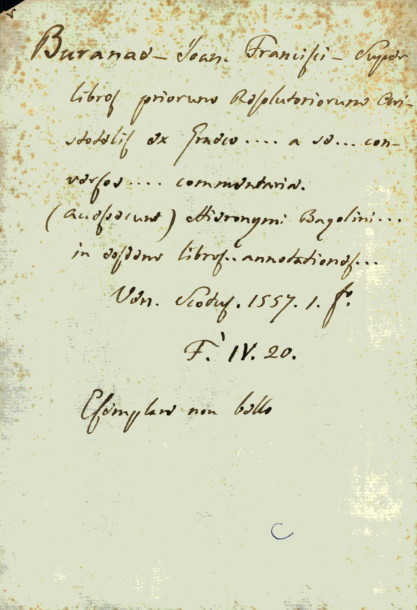 Buranae - Joan. Francisci - Super
libros priorum Resolutoriorum Ari-
stotelis ex Graeco .... a se ... con-
versos .... commentaria.
(Accesserunt) Hieronymi Bagolini ...
in eosdem libros .. annotationes ...
Ven. Scotus. 1557. 1. f.º
F. IV. 20.
Esemplare non bello
C